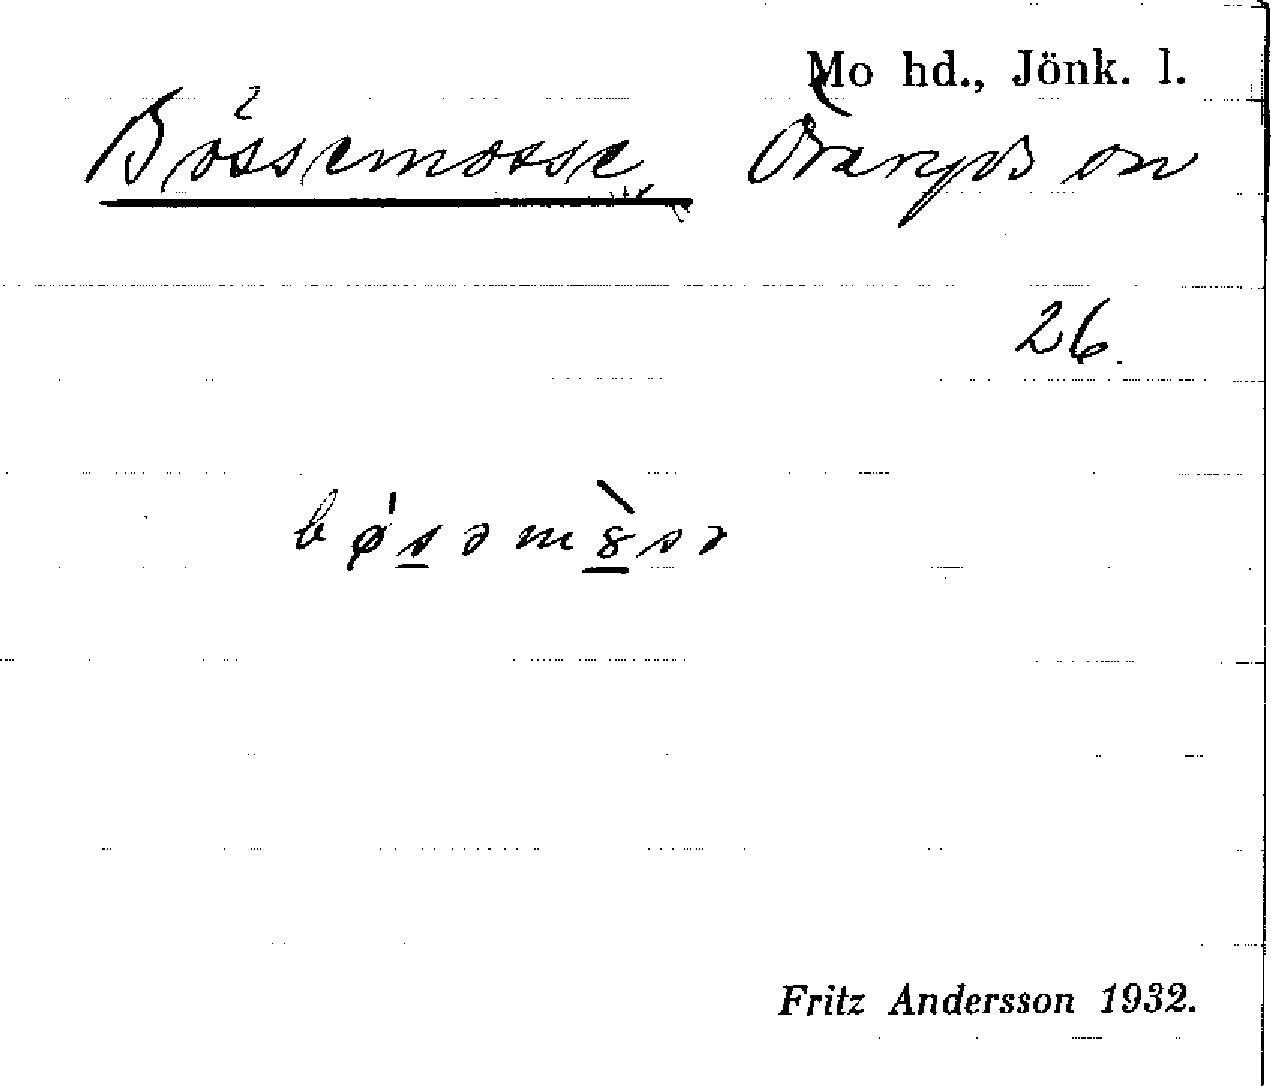 Mo hd., Jönk. l.
Bössemosse Öreryds sn
26.
bø´səmòsə
Fritz Andersson 1932.